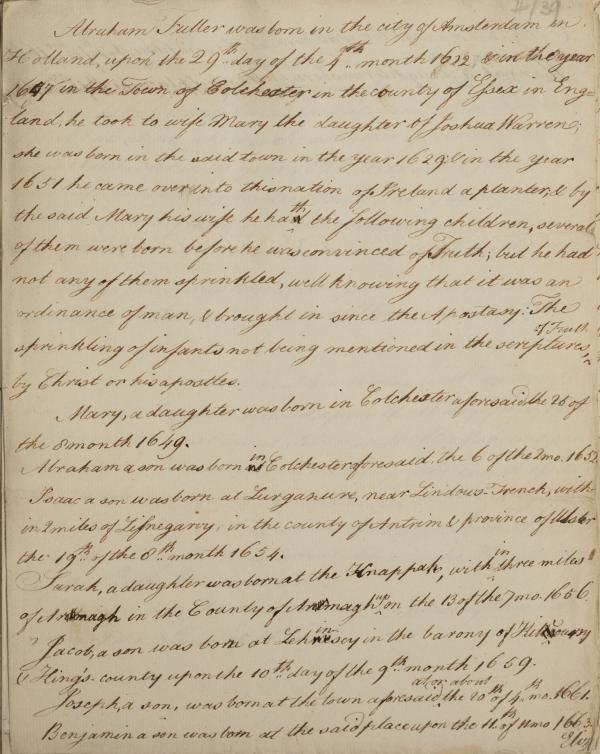 4/39
Abraham Fuller was born in the city of Amsterdam in
Holland, upon the 29th day of the 4th month 1622, & in the year
1647 in the Town of Colchester in the county of Essex in Eng=
land, he took to wife Mary the daughter of Joshua Warren;
she was born in the said town in the year 1629; & in the year
1651 he came over into this nation of Ireland a planter, & by
the said Mary his wife he hath the following children, several
of them were born before he was convinced of Truth; but he had
not any of them sprinkled, well knowing that it was an
ordinance of man, & brought in since the Apostasy: The
sprinkling of infants not being mentioned in the scriptures of Truth,
by Christ or his apostles.
Mary, a daughter was born in Colchester aforesaid the 26 of
the 8 month 1649.
Abraham a son was born in Colchester aforesaid. the 6 of the 2 mo. 1652
Isaac a son was born at Lurganure, near Lindows-French, with=
in 2 miles of Lisnegarvy, in the county of Antrim & province of Ulster
the 19th of the 8th month 1654.
Sarah, a daughter was born at the Knappah, within three miles
of Armagh in the County of Armagh upon the 13 of the 7 mo. 1656.
Jacob, a son was born at Lehinsey in the barony of
& King's county upon the 10th day of the 9th month 1659.
Joseph, a son, was born at the town aforesaid at or about the 20th of 4th mo. 1661.
Benjamin a son was born at the said place upon the 11th of 11 mo 1663.